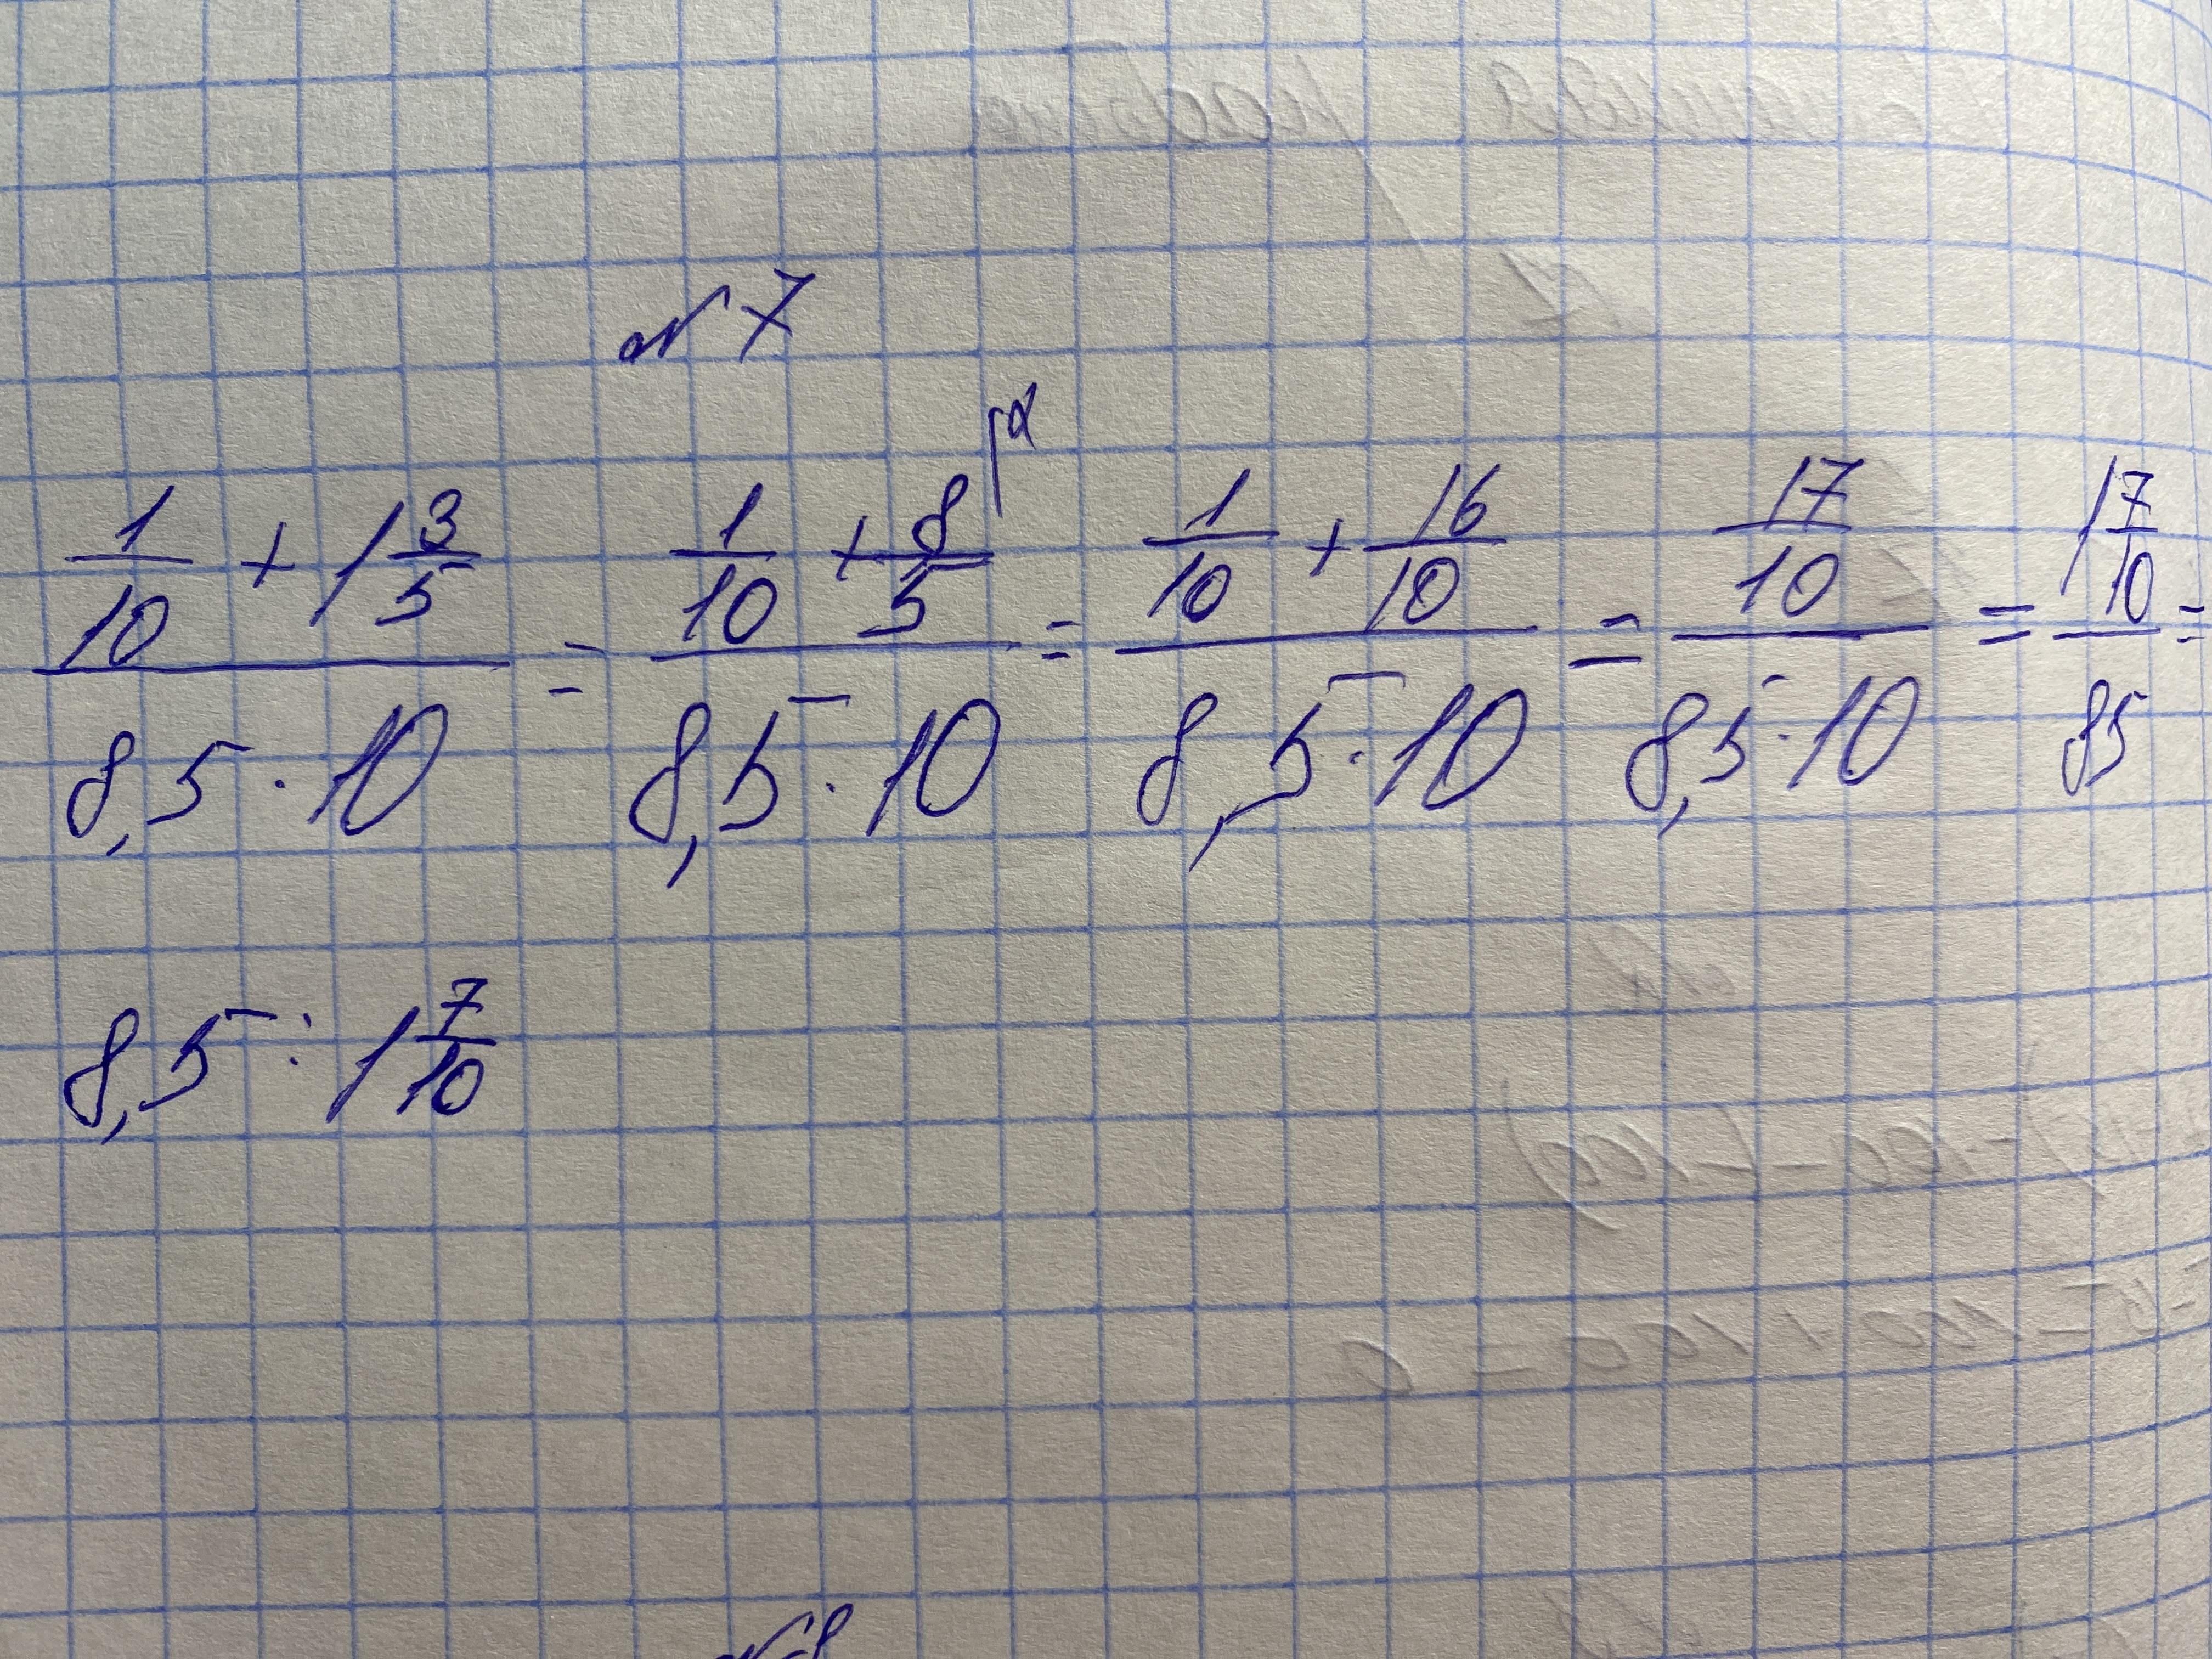 № 7
(1/10 + 1 3/5) / (8,5 · 10) = (1/10 + 8/5 |2) / (8,5 · 10) = (1/10 + 16/10) / (8,5 · 10) = (17/10) / (8,5 · 10) = (1 7/10) / 85 =
8,5 : 1 7/10
№ 8